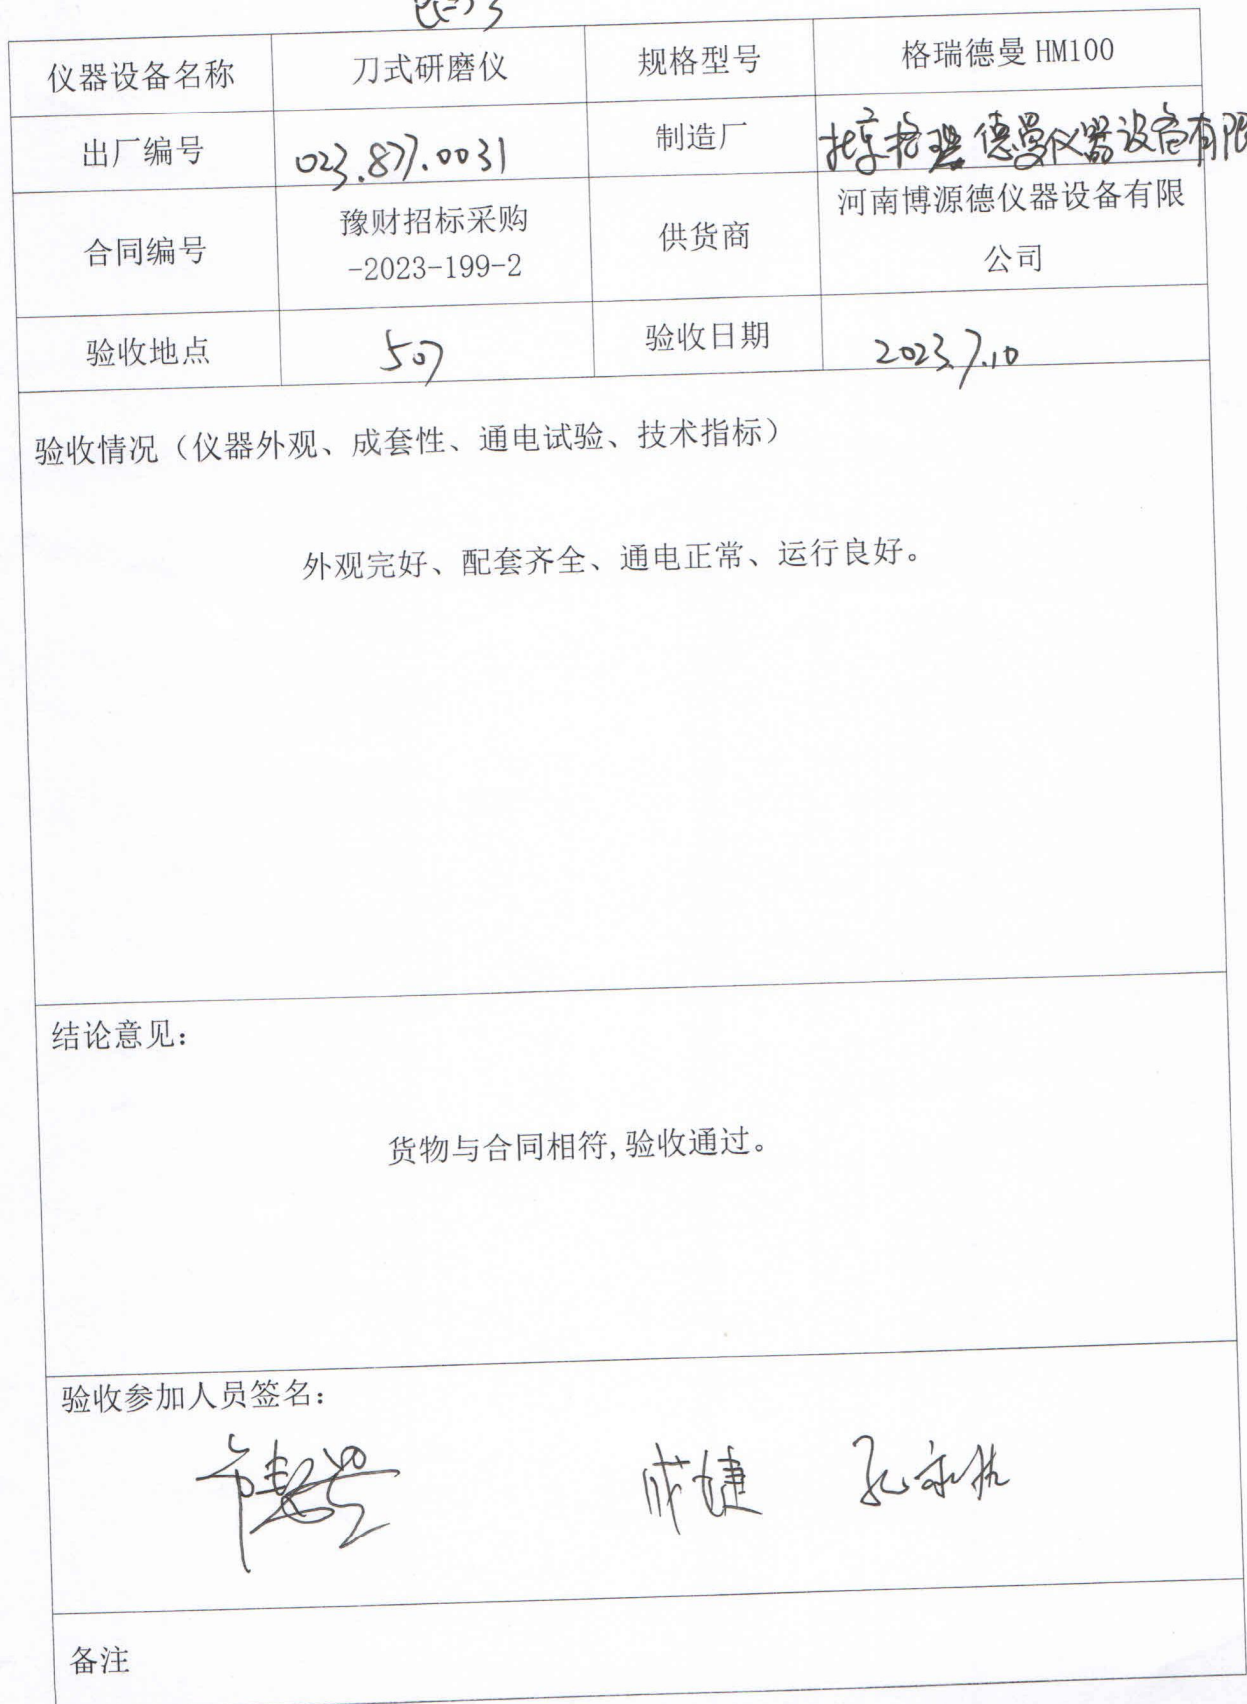 仪器设备名称 刀式研磨仪 规格型号 格瑞德曼 HM100
出厂编号 023.877.0031 制造厂 北京格瑞德曼仪器设备有限
合同编号 豫财招标采购 供货商 河南博源德仪器设备有限
-2023-199-2 公司
验收地点 507 验收日期 2023.7.10
验收情况（仪器外观、成套性、通电试验、技术指标）
外观完好、配套齐全、通电正常、运行良好。
结论意见：
货物与合同相符,验收通过。
验收参加人员签名：
成婕
备注